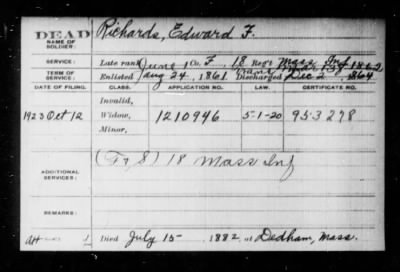 DEAD
NAME OF SOLDIER:
Richards, Edward F.
SERVICE:
Late rank, Co. F, 18 Reg't Mass Inf
TERM OF SERVICE:
Enlisted Aug 24, 1861 Discharged Dec 2, 1864
DATE OF FILING. CLASS. APPLICATION NO. LAW. CERTIFICATE NO.
Invalid,
1923 Oct 12 Widow, 1210946 5-1-20 953278
Minor,
ADDITIONAL SERVICES:
(F, S) 18 Mass Inf
REMARKS:
Died July 15, 1882, at Dedham, Mass.